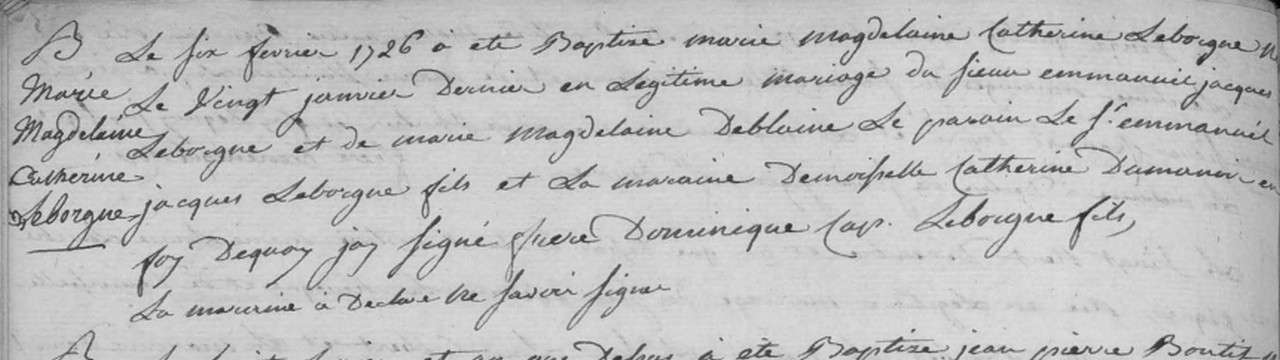 B
Marie
Magdelaine
Catherine
Leborgne
Le six fevrier 1726 a ete Baptise marie magdelaine Catherine Leborgne
Le Vingt janvier Dernier en Legitime mariage du sieur emmanuel jacques
Leborgne et de marie magdelaine Deblaine Le parain Le Sr. emmanuel
jacques Leborgne fils et La maraine Demoiselle Catherine Dumanoir en
foy Dequoy jay signé frere Dominique Cap. Leborgne fils,
La maraine a Declare ne savoir signer
a ete Baptize jean pierre